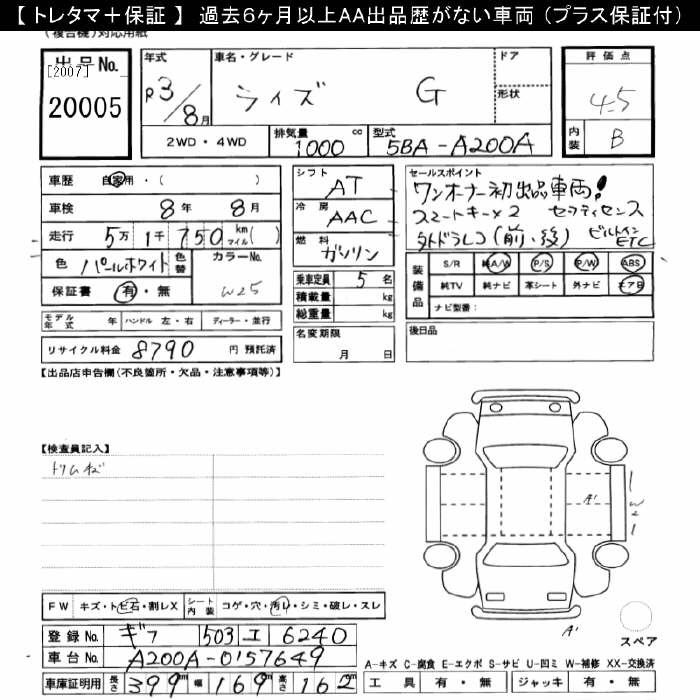 【 トレタマ＋保証 】 過去6ヶ月以上AA出品歴がない車両（プラス保証付）
（複合機）対応用紙
出品No.
[2007]
20005
年式
R3/8月
車名・グレード
ライズ G
ドア
形状
評価点
4.5
内装 B
2WD・4WD
排気量 1000 cc
型式 5BA-A200A
車歴 自家用・( )
車検 8年 8月
走行 5万 1千 750 km マイル( )
色 パールホワイト 色替
カラーNo. W25
保証書 有・無
モデル年式 年 ハンドル 左・右 ディーラー・並行
リサイクル料金 8790 円 預託済
シフト AT
冷房 AAC
燃料 ガソリン
乗車定員 5 名
積載量 kg
総重量 kg
名変期限
月 日
セールスポイント
ワンオーナー初出品車両!
スマートキー×2 セーフティセンス
外ドラレコ(前・後) ビルトインETC
装備品
S/R 純A/W P/S P/W ABS
純TV 純ナビ 革シート 外ナビ エアB
ナビ型番：
後日品
【出品店申告欄(不良箇所・欠品・注意事項等)】
【検査員記入】
トリムキズ
A1
W2
A1
スペア
FW キズ・トビ石・割レX
シート内装 コゲ・穴・汚レ・シミ・破レ・スレ
登録No. ギフ 503 エ 6240
車台No. A200A-0157649
車庫証明用 長さ 399cm 幅 169cm 高さ 162cm
A-キズ C-腐食 E-エクボ S-サビ U-凹ミ W-補修 XX-交換済
工具 有・無 ジャッキ 有・無